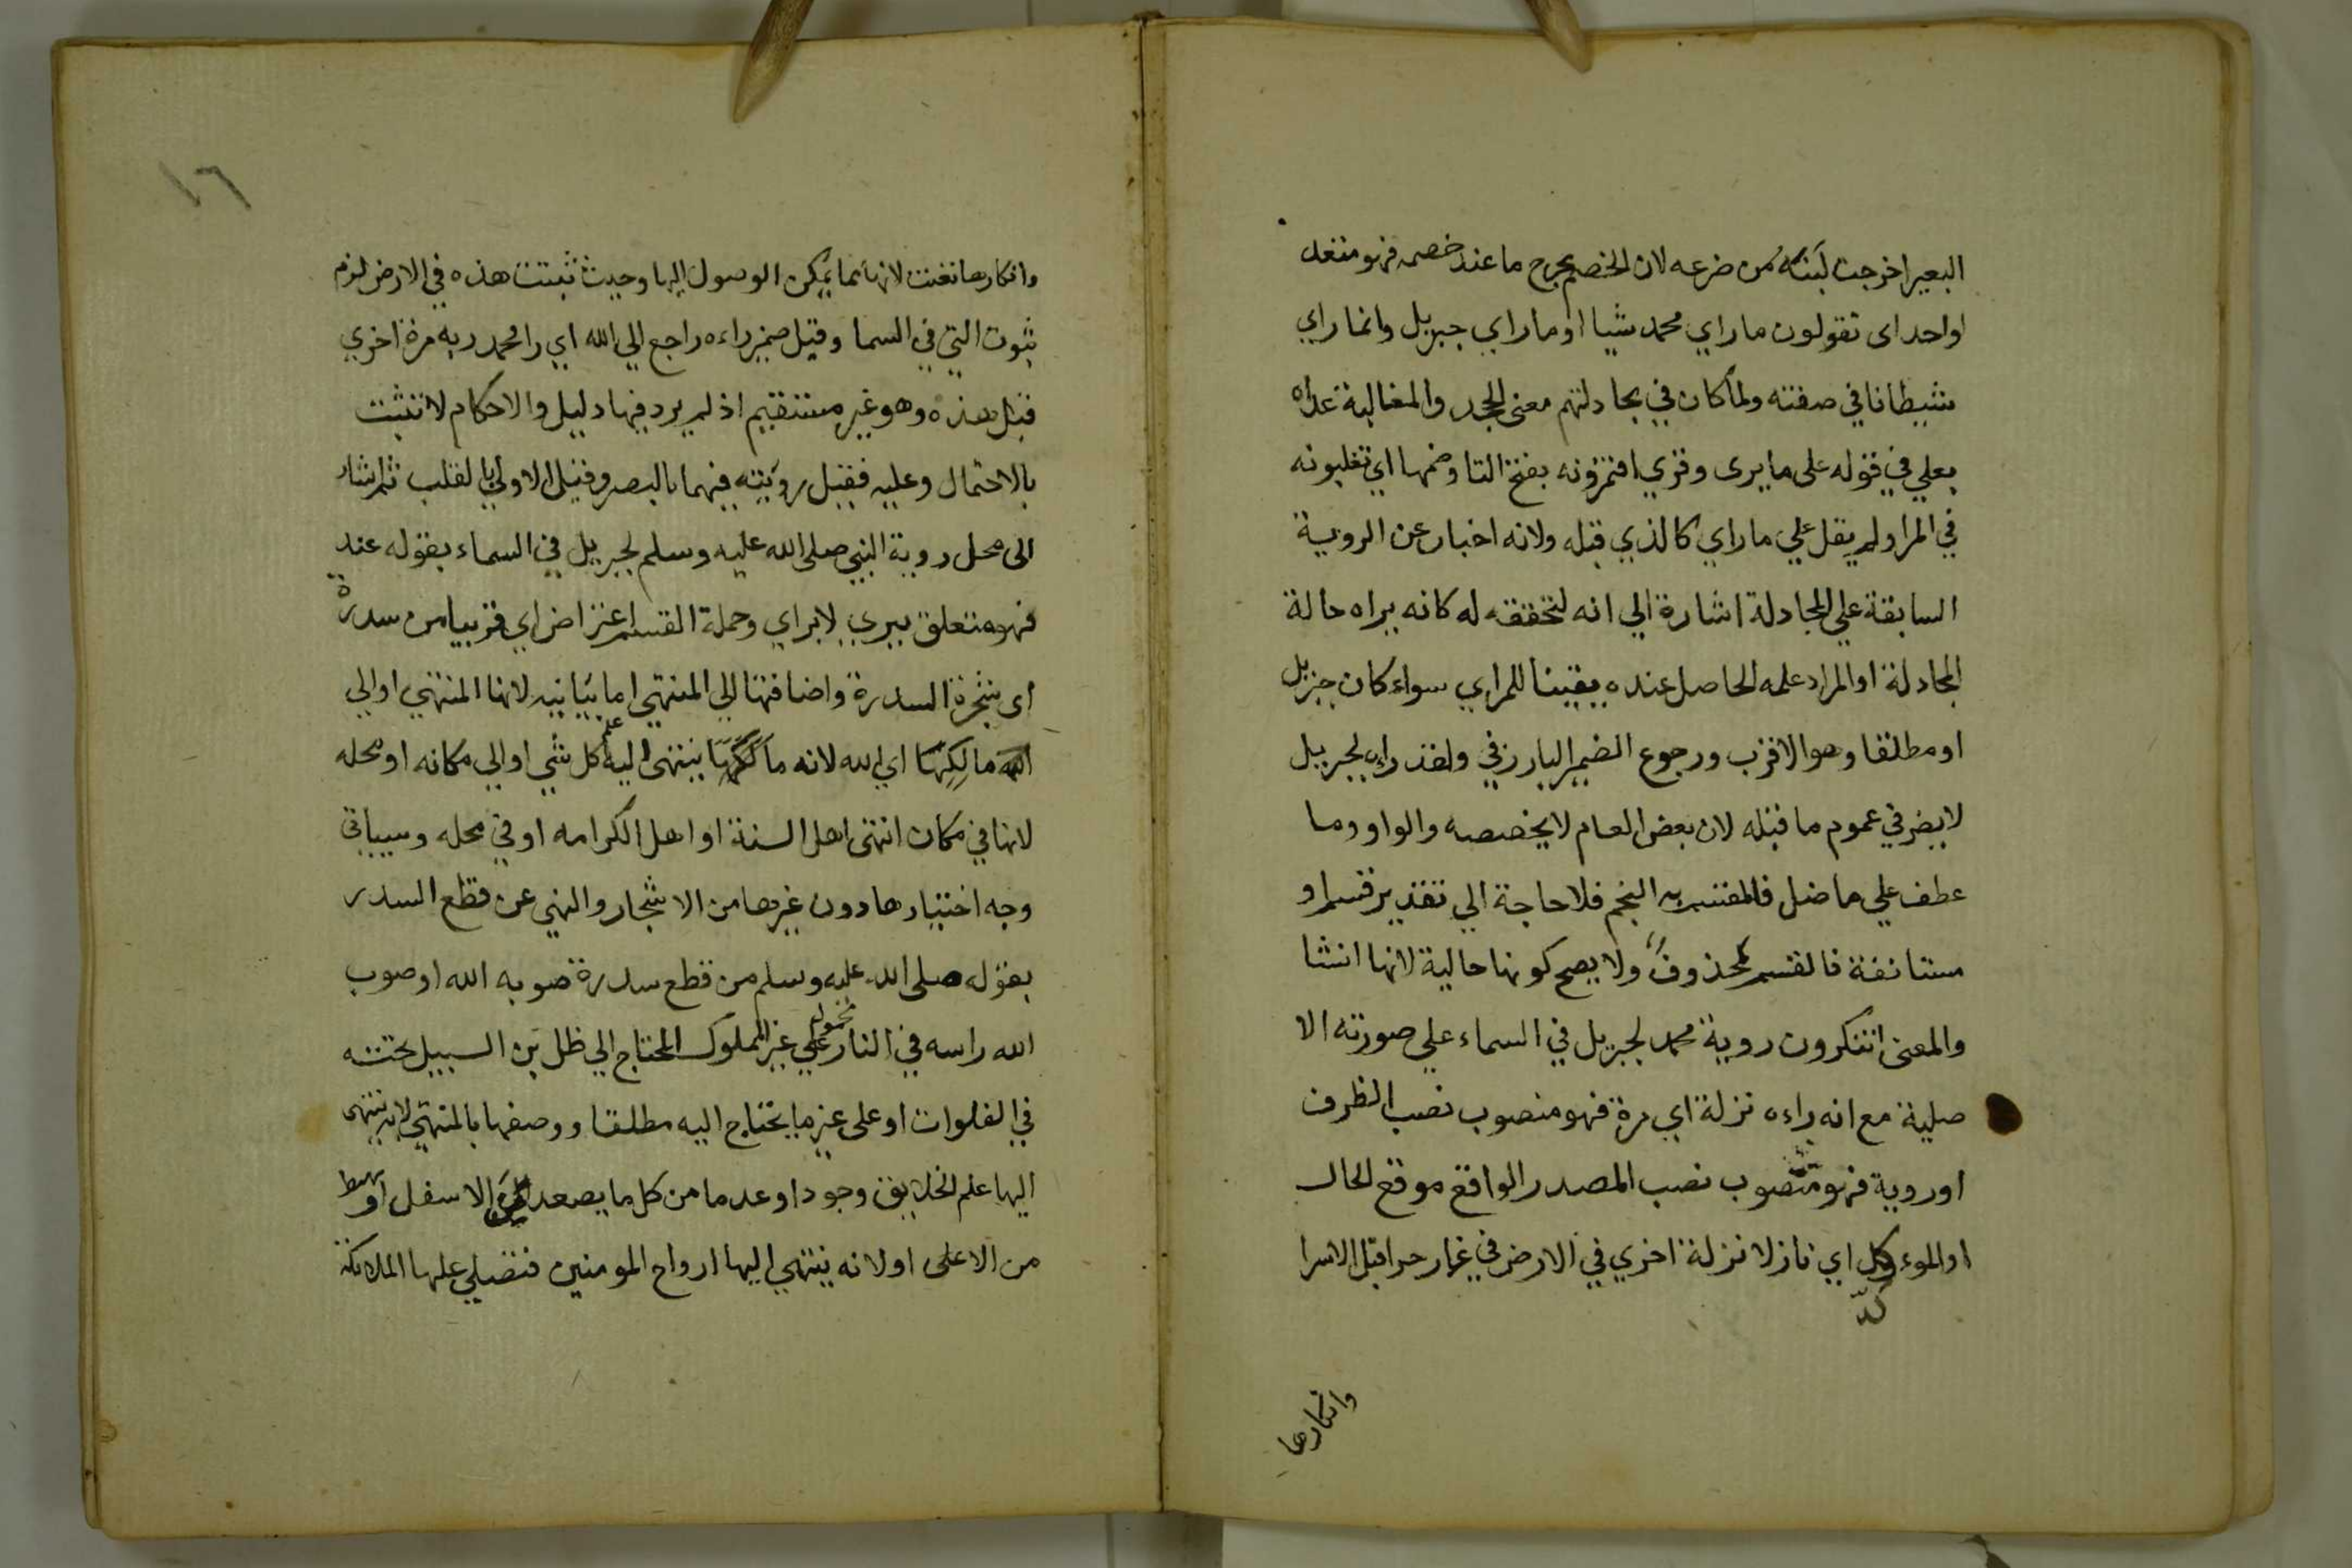 البعير اخرجت لبنه من ضرعه لان الخصم يخرج ما عند خصمه فهو متعد
لواحد اى تقولون ماراي محمد شيا او ماراي جبريل وانما راي
شيطانا في صفته ولما كان في مجادلتهم معنى الجحد والمغالبة عداه
بعلي في قوله على مايرى وقري افتمرونه بفتح التا وضمها اي تغلبونه
في المرا ولم يقل علي ماراي كالذي قبله ولانه اخبار عن الروية
السابقة علي المجادلة اشارة الي انه لتحققه له كانه يراه حالة
المجادلة او المراد علمه الحاصل عنده يقينا للمراي سواء كان جبريل
او مطلقا وهو الاقرب ورجوع الضمير البارز في ولقد راه لجبريل
لا يضر في عموم ما قبله لان بعض العام لا يخصصه والواو وما
عطف علي ماضل فالمقسم به النجم فلا حاجة الي تقدير قسم او
مستانفة فالقسم محذوف ولا يصح كونها حالية لانها انشا
والمعنى اتنكرون روية محمد لجبريل في السماء علي صورته الا
صلية مع انه راءه نزلة اي مرة فهو منصوب نصب الظرف
او روية فهو منصوب نصب المصدر الواقع موقع الحال
او الموءكد اي نازلا نزلة اخري في الارض في غار حرا قبل الاسرا
كد
وانكارها
١٦
وانكارها تعنت لانها مما يمكن الوصول اليها وحيث ثبتت هذه في الارض لزم
ثبوت التي في السما وقيل ضمير راءه راجع الي الله اي را محمد ربه مرة اخري
قبل هذه وهو غير مستقيم اذ لم يرد فيها دليل والاحكام لا تثبت
بالاحتمال وعليه فقيل رويته فيهما بالبصر وقيل الاولي بالقلب ثم اشار
الى محل روية النبي صلى الله عليه وسلم لجبريل في السماء بقوله عند
فهو متعلق بيري لا براي وجملة القسم اعتراض اي قريبا من سدرة
اى شجرة السدرة واضافتها الي المنتهي اما بيانيه لانها المنتهي او الي
مالكها اي الله لانه مالكها ينتهى اليه علم كل شي او الي مكانه او محله
لانها في مكان انتهى اهل السنة او اهل الكرامه او في محله وسياتي
وجه اختيارها دون غيرها من الاشجار والنهي عن قطع السدر
بقوله صلى الله عليه وسلم من قطع سدرة صوبه الله او صوب
الله راسه في النار محمول علي غير المملوك المحتاج الي ظل بن السبيل تحته
في الفلوات او على غير ما يحتاج اليه مطلقا ووصفها بالمنتهي لانه ينتهى
اليها علم الخلايق وجودا وعدما من كل ما يصعد من الاسفل او يهبط
من الاعلى اولانه ينتهي اليها ارواح المومنين فتصلي عليها الملائكة